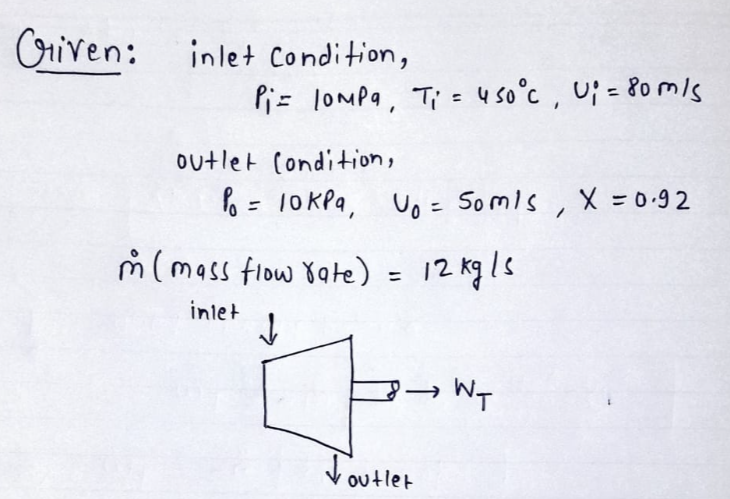 Given: inlet condition,
Pi = 10MPa, Ti = 450°C, Ui = 80 m/s
outlet condition,
Po = 10KPa, Uo = 50m/s, X = 0.92
ṁ (mass flow rate) = 12 kg/s
inlet
→ WT
outlet